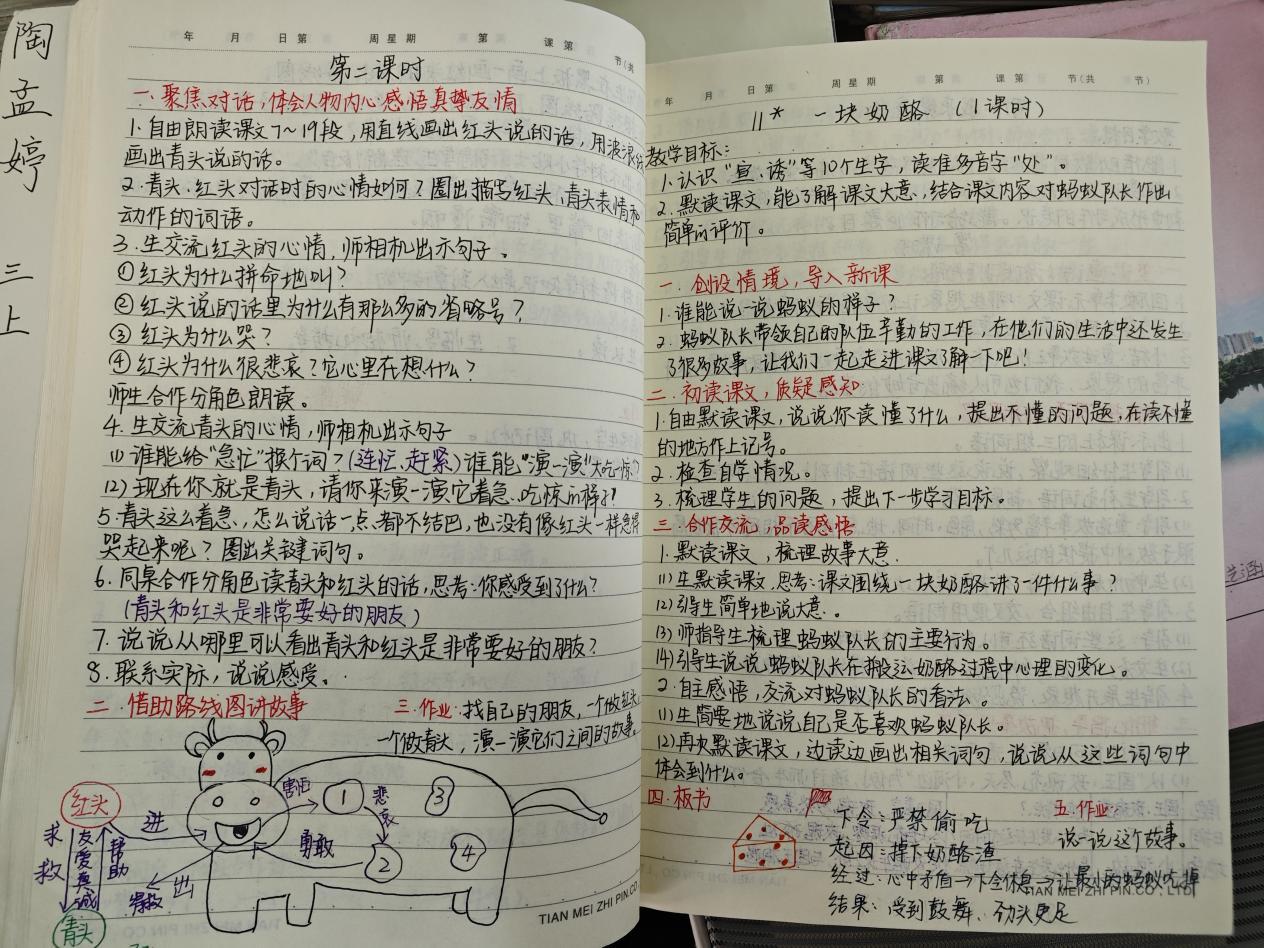 陶孟婷 三上
年 月 日 第 周 星期 第 课 第 节(共
第二课时
一、聚焦对话,体会人物内心感悟真挚友情
1.自由朗读课文7~19段,用直线画出红头说的话,用波浪线
画出青头说的话。
2.青头、红头对话时的心情如何?圈出描写红头、青头表情和
动作的词语。
3.生交流红头的心情,师相机出示句子。
①红头为什么拼命地叫?
②红头说的话里为什么有那么多的省略号?
③红头为什么哭?
④红头为什么很悲哀?它心里在想什么?
师生合作分角色朗读。
4.生交流青头的心情,师相机出示句子
(1)谁能给“急忙”换个词?(连忙、赶紧)谁能“演一演”“大吃一惊”?
(2)现在你就是青头,请你来演一演它着急、吃惊的样子!
5.青头这么着急,怎么说话一点都不结巴,也没有像红头一样急得
哭起来呢?圈出关键词句。
6.同桌合作分角色读青头和红头的话,思考:你感受到了什么?
(青头和红头是非常要好的朋友)
7.说说从哪里可以看出青头和红头是非常要好的朋友?
8.联系实际,说说感受。
二、借助路线图讲故事
三、作业:找自己的朋友,一个做红头
一个做青头,演一演它们之间的故事。
红头
求救
友爱真诚
帮助
青头
进
出
得救
害怕
1
悲哀
2
勇敢
3
4
TIAN MEI ZHI PIN.CO
年 月 日 第 周 星期 第 课 第 节(共 节)
11* 一块奶酪(1课时)
教学目标:
1.认识“宣、诱”等10个生字,读准多音字“处”。
2.默读课文,能了解课文大意、结合课文内容对蚂蚁队长作出
简单的评价。
一、创设情境,导入新课
1.谁能说一说蚂蚁的样子?
2.蚂蚁队长带领自己的队伍辛勤的工作,在他们的生活中还发生
了很多故事,让我们一起走进课文了解一下吧!
二、初读课文,质疑感知
1.自由默读课文,说说你读懂了什么,提出不懂的问题,在读不懂
的地方作上记号。
2.检查自学情况。
3.梳理学生的问题,提出下一步学习目标。
三、合作交流,品读感悟
1.默读课文,梳理故事大意.
(1)生默读课文,思考:课文围绕一块奶酪讲了一件什么事?
(2)引导生简单地说大意.
(3)师指导生梳理蚂蚁队长的主要行为。
(4)引导生说说蚂蚁队长在搬运奶酪过程中心理的变化。
2.自主感悟,交流对蚂蚁队长的看法。
(1)生简要地说说自己是否喜欢蚂蚁队长。
(2)再次默读课文,边读边画出相关词句,说说从这些词句中
体会到什么。
四、板书
下令:严禁偷吃
起因:掉下奶酪渣
经过:心中矛盾→下令休息→让最小的蚂蚁吃掉
结果:受到鼓舞、劲头更足
五、作业:
说一说这个故事。
TIAN MEI ZHI PIN.CO., LTD